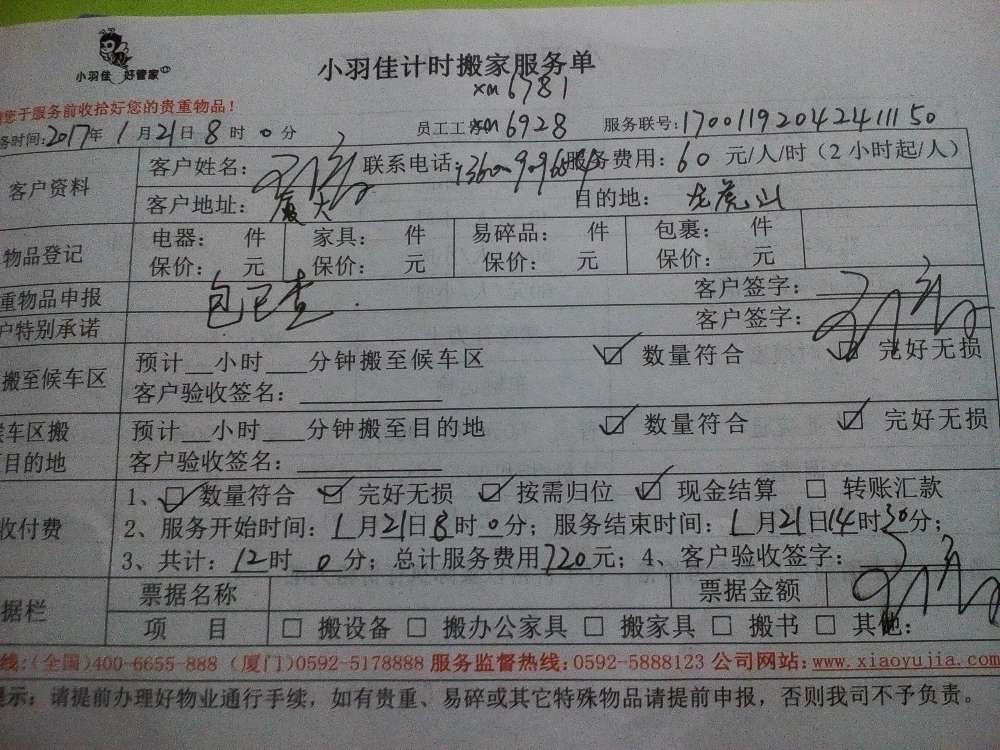 小羽佳 好管家
小羽佳计时搬家服务单
xm6781
您于服务前收拾好您的贵重物品！
务时间：2017年1月21日8时0分 员工工 xm6928 服务联号：1700119204241150
客户资料 客户姓名： 联系电话： 服务费用：60元/人/时（2小时起/人）
客户地址：厦大 目的地：龙虎山
物品登记 电器： 件 家具： 件 易碎品： 件 包裹： 件
保价： 元 保价： 元 保价： 元 保价： 元
重物品申报 包已查. 客户签字：
户特别承诺 客户签字：
搬至候车区 预计__小时___分钟搬至候车区 ☑ 数量符合 ☑ 完好无损
客户验收签名：__________
候车区搬 预计__小时___分钟搬至目的地 ☑ 数量符合 ☑ 完好无损
目的地 客户验收签名：__________
收付费 1、☑ 数量符合 ☑ 完好无损 ☑ 按需归位 ☑ 现金结算 □ 转账汇款
2、服务开始时间：1月21日8时0分；服务结束时间：1月21日14时30分；
3、共计：12时0分；总计服务费用720元；4、客户验收签字：
据栏 票据名称 票据金额
项 目 □ 搬设备 □ 搬办公家具 □ 搬家具 □ 搬书 □ 其他：
线：(全国)400-6655-888 (厦门)0592-5178888 服务监督热线：0592-5888123 公司网站：www.xiaoyujia.com
提示：请提前办理好物业通行手续，如有贵重、易碎或其它特殊物品请提前申报，否则我司不予负责。